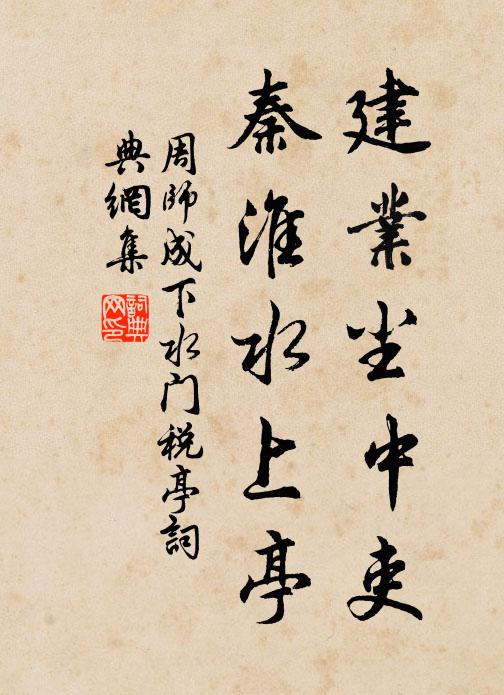 建業尘中吏
秦淮水上亭
周師成下水门税亭詞
典網集
詞典网印